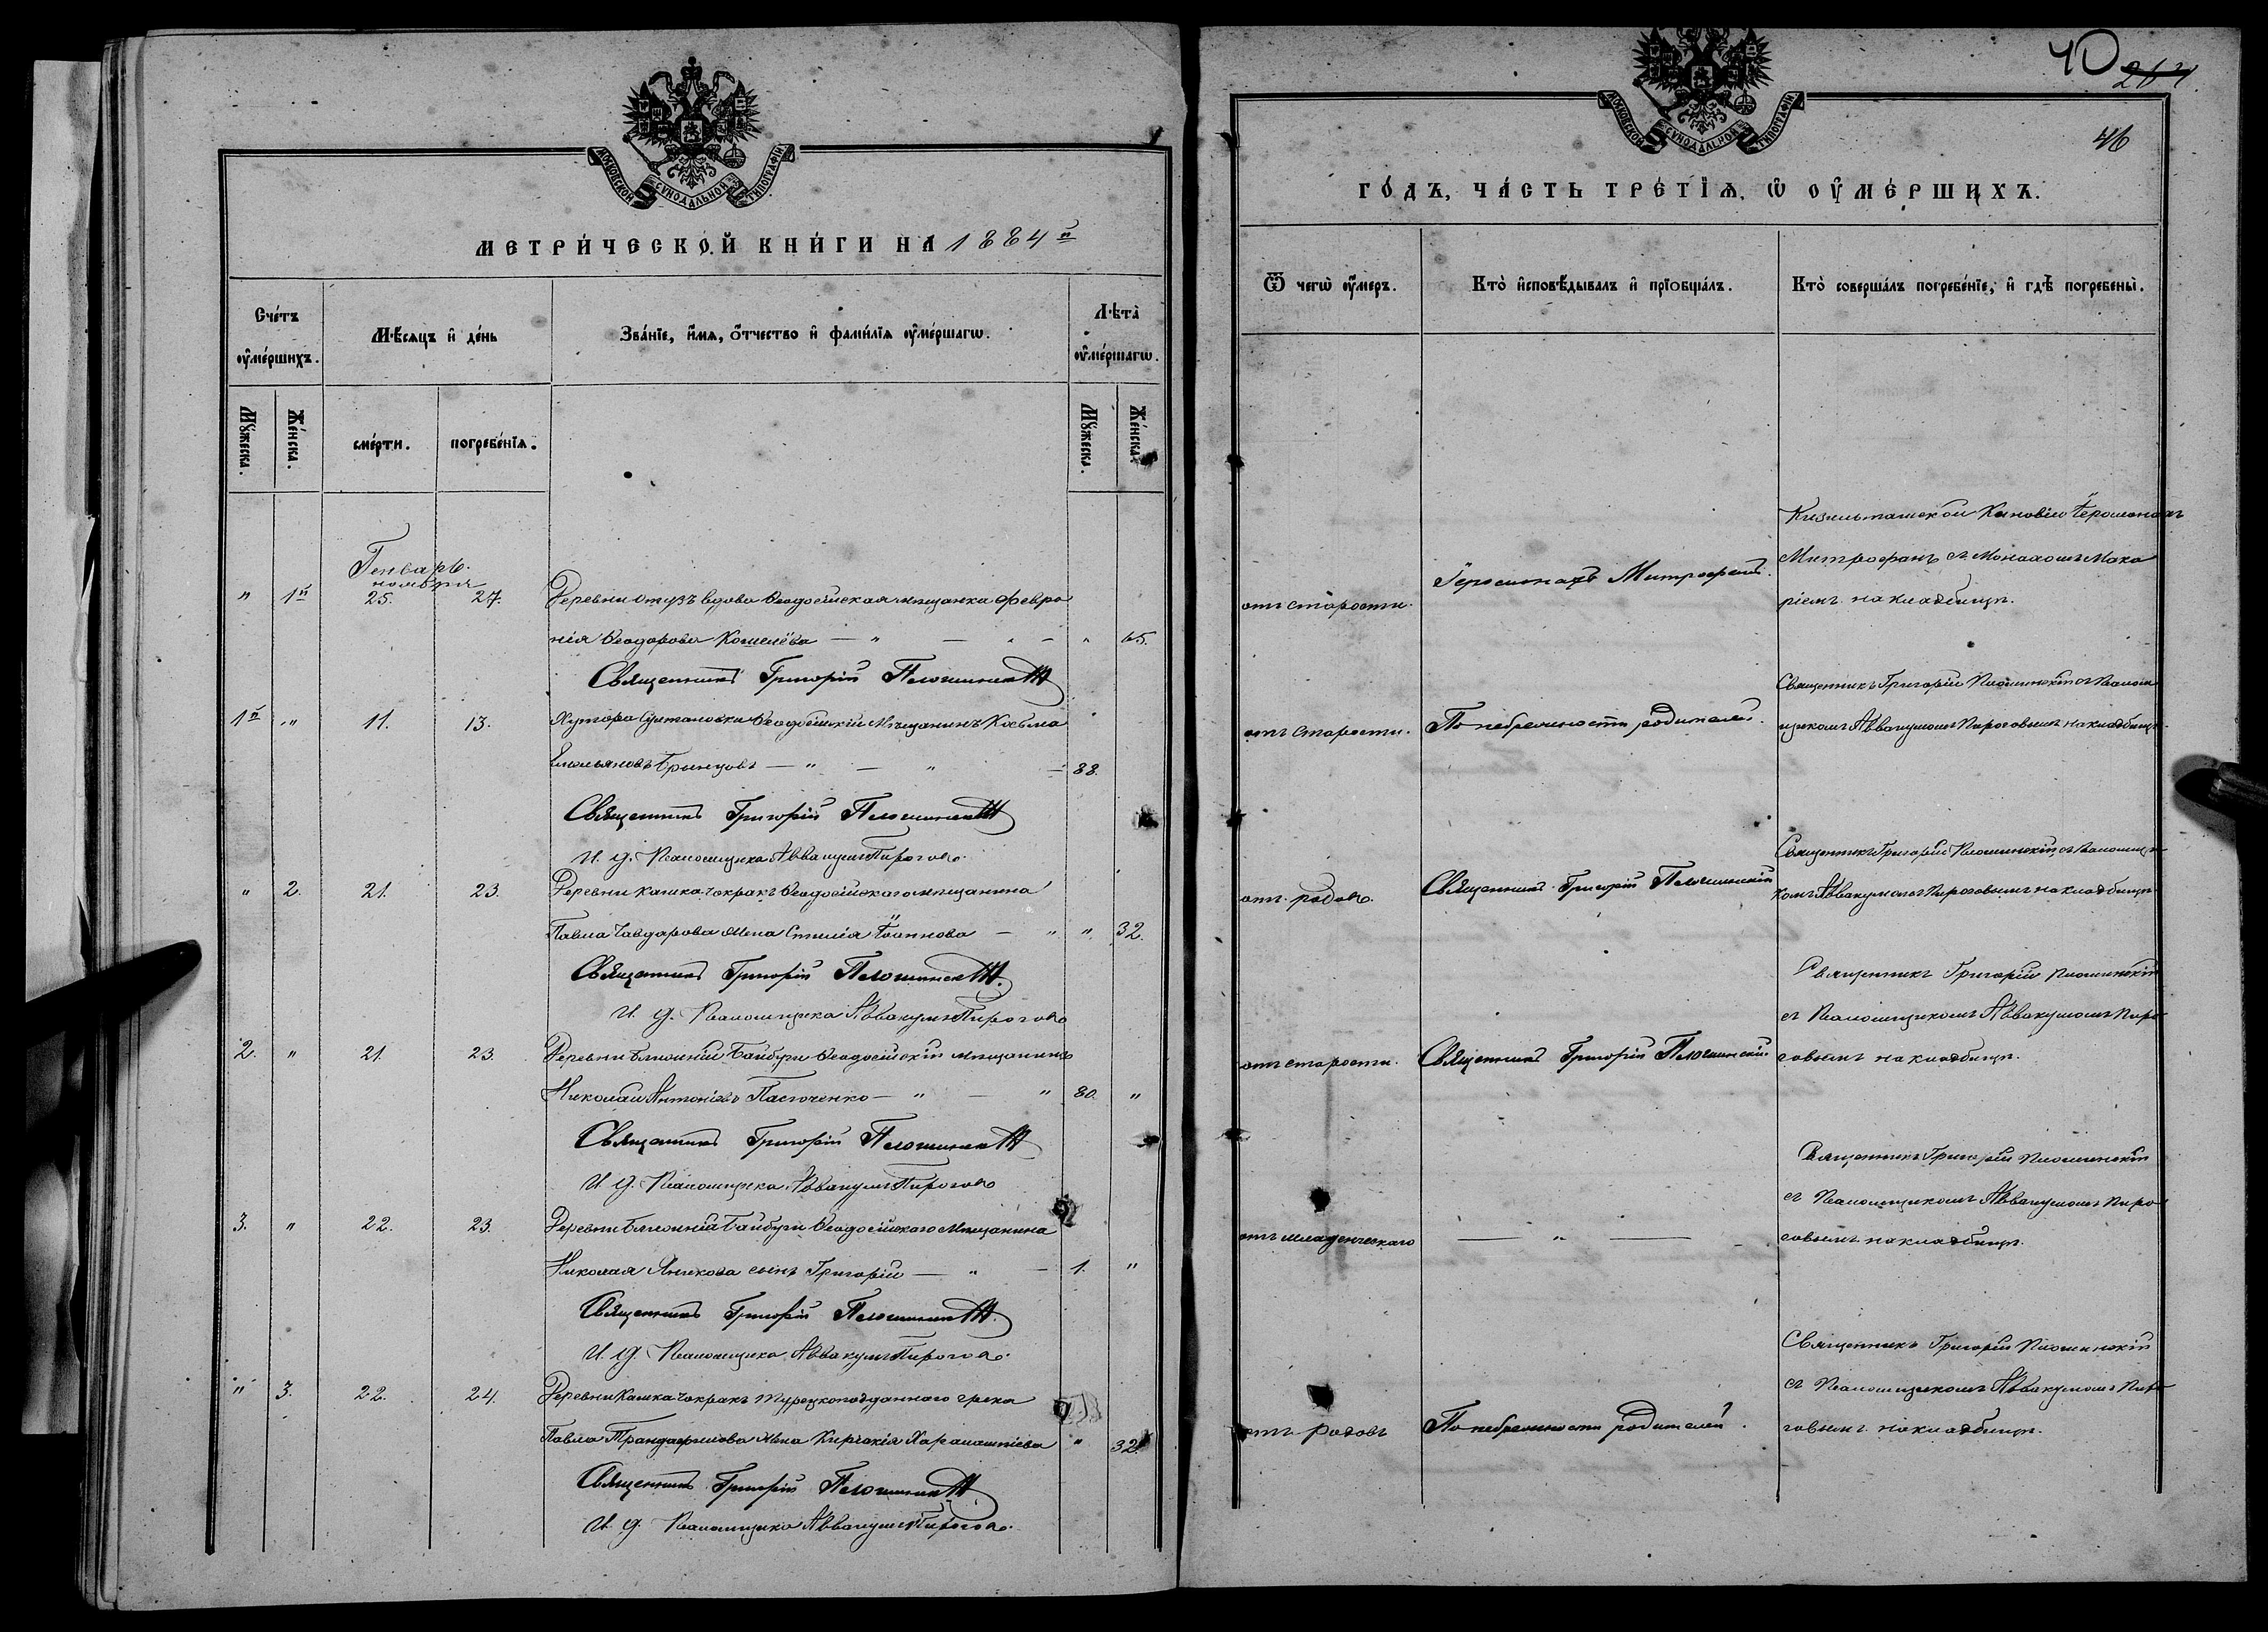 МОСКОВСКОЙ СѴНОДАЛЬНОЙ ТИПОГРАФІИ
МЕТРИ́ЧЕСКОЙ КНИ́ГИ НА 1884й
Сче́тъ ᲂу҆ме́ршихъ.
Мѣ́сяцъ и҆ де́нь
Зва́нїе, и҆́мя, ѻ҆́тчество и҆ фами́лїя ᲂу҆ме́ршагѡ.
Лѣта̀ ᲂу҆ме́ршагѡ.
Мꙋ́жеска.
Же́нска.
сме́рти.
погребе́нїѧ.
Мꙋ́жеска.
Же́нска.
Генварь.
ноября
" 1й 25. 27. Деревни Отузъ вдова Ѳеодосійская мѣщанка Февро
нія Ѳеодорова Кошелёва — " — " — " 65.
Священникъ Григорій Плошинскій
1й " 11. 13. Хутора Султановки Ѳеодосійскій Мѣщанинъ Косьма
Емельяновъ Брынцовъ — " — " — 88.
Священникъ Григорій Плошинскій
И. д. Псаломщика Аввакумъ Пироговъ
" 2. 21. 23. Деревни Кашка-чокракъ Ѳеодосійскаго мѣщанина
Павла Чавдарова жена Стилія Іоаннова — " " 32.
Священникъ Григорій Плошинскій.
И. д. Псаломщика Аввакумъ Пироговъ
2. " 21. 23. Деревни Ближній Байбуги Ѳеодосійскій мѣщанинъ
Николай Антоніевъ Пасюченко — " — " 80. "
Священникъ Григорій Плошинскій
И. д. Псаломщика Аввакумъ Пироговъ
3. " 22. 23. Деревни Ближній Байбуги Ѳеодосійскаго Мѣщанина
Николая Яникова сынъ Григорій — " — 1. "
Священникъ Григорій Плошинскій.
И. д. Псаломщика Аввакумъ Пироговъ
" 3. 22. 24. Деревни Кашка-чокракъ турецкоподданнаго грека
Павла Трандафилова жена Киріакія Харалампіева " 32.
Священникъ Григорій Плошинскій
И. д. Псаломщика Аввакумъ Пироговъ.
40 264.
46
МОСКОВСКОЙ СѴНОДАЛЬНОЙ ТИПОГРАФІИ
ГО́ДЪ, ЧА́СТЬ ТРЕ́ТЇѦ, Ѡ҆ ОУ҆МЕ́РШИХЪ.
Ѿ чегѡ̀ ᲂу҆́меръ.
Кто̀ и҆сповѣ́дывалъ и҆ прїобща́лъ.
Кто̀ соверша́лъ погребе́нїе, и҆ гдѣ̀ погребены̀.
отъ старости.
Іеромонахъ Митрофанъ.
Кизильташской Киновіи Іеромонахъ
Митрофанъ съ Монахомъ Мака
ріемъ на кладбищѣ.
отъ старости.
По небрежности родителей.
Священникъ Григорій Плошинскій съ Псалом
щикомъ Аввакумомъ Пироговымъ на кладбищѣ.
отъ родовъ.
Священникъ Григорій Плошинскій
Священникъ Григорій Плошинскій, съ Псаломщи
комъ Аввакумомъ Пироговымъ на кладбищѣ
отъ старости.
Священникъ Григорій Плошинскій
Священникъ Григорій Плошинскій
съ Псаломщикомъ Аввакумомъ Пиро
говымъ на кладбищѣ.
отъ младенческаго
— " —
Священникъ Григорій Плошинскій
съ Псаломщикомъ Аввакумомъ Пиро
говымъ на кладбищѣ.
отъ родовъ
По небрежности родителей.
Священникъ Григорій Плошинскій
съ Псаломщикомъ Аввакумомъ Пиро
говымъ на кладбищѣ.